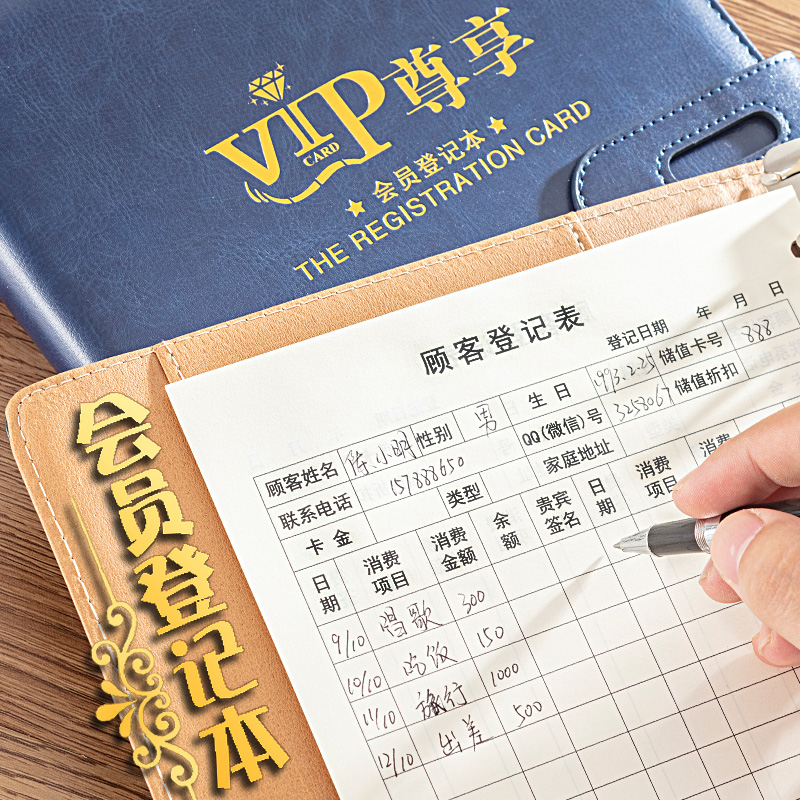 VIP尊享
CARD
★会员登记本★
THE REGISTRATION CARD
会员登记本
顾客登记表
登记日期 年 月 日
顾客姓名 陈小明 性别 男 生日 1993.2.25 储值卡号 888
联系电话 157888650 QQ(微信)号 3258067 储值折扣
卡金 类型 家庭地址
日期 消费项目 消费金额 余额 贵宾签名 日期 消费项目 消费
9/10 唱歌 300
10/10 吃饭 150
11/10 旅行 1000
12/10 出差 500